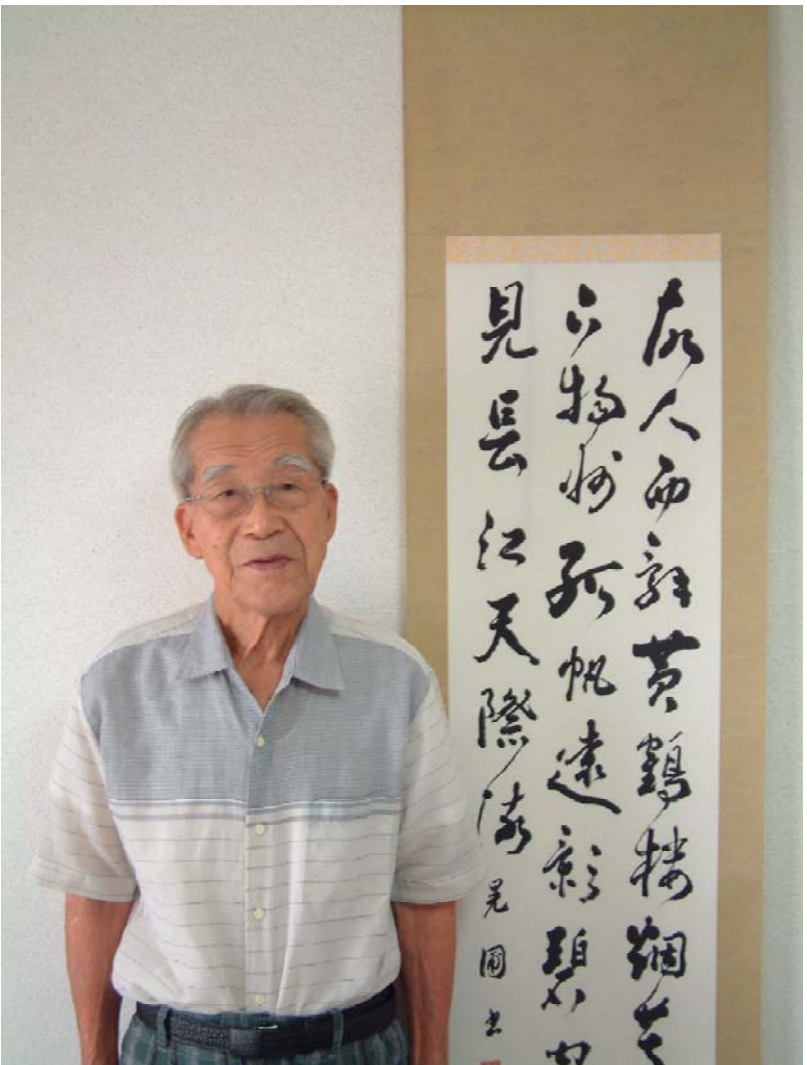 故人西辞黄鶴楼烟花
下揚州孤帆遠影碧空
見長江天際流 晃國書